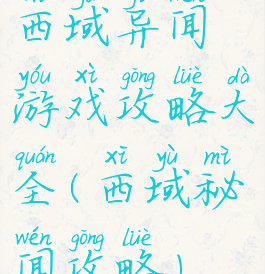 西域异闻
yóu xì gōng lüè dà
游戏攻略大
quán xī yù mì
全(西域秘
wén gōng lüè
闻攻略)